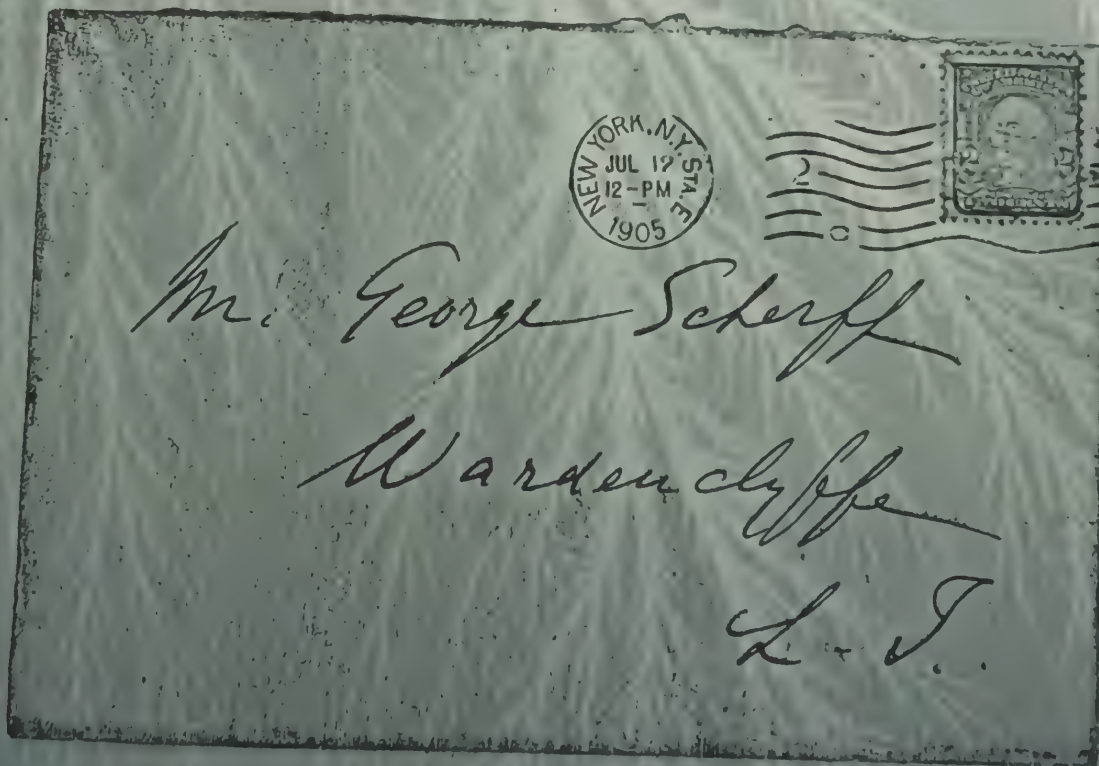 NEW YORK, N.Y. STA. E
JUL 19
12-PM
1905
2
C
Mr. George Scherff
Wardenclyffe
L. I.